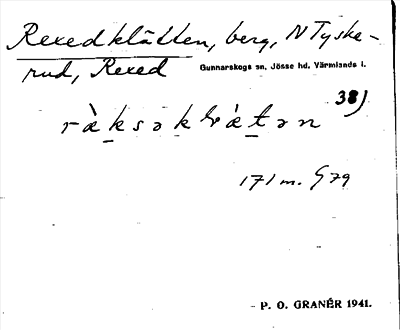 Rexedklätten, berg, N Tyske-
rud, Rexed
Gunnarskogs sn, Jösse hd, Värmlands l.
38)
171 m. G79
P. O. GRANÉR 1941.